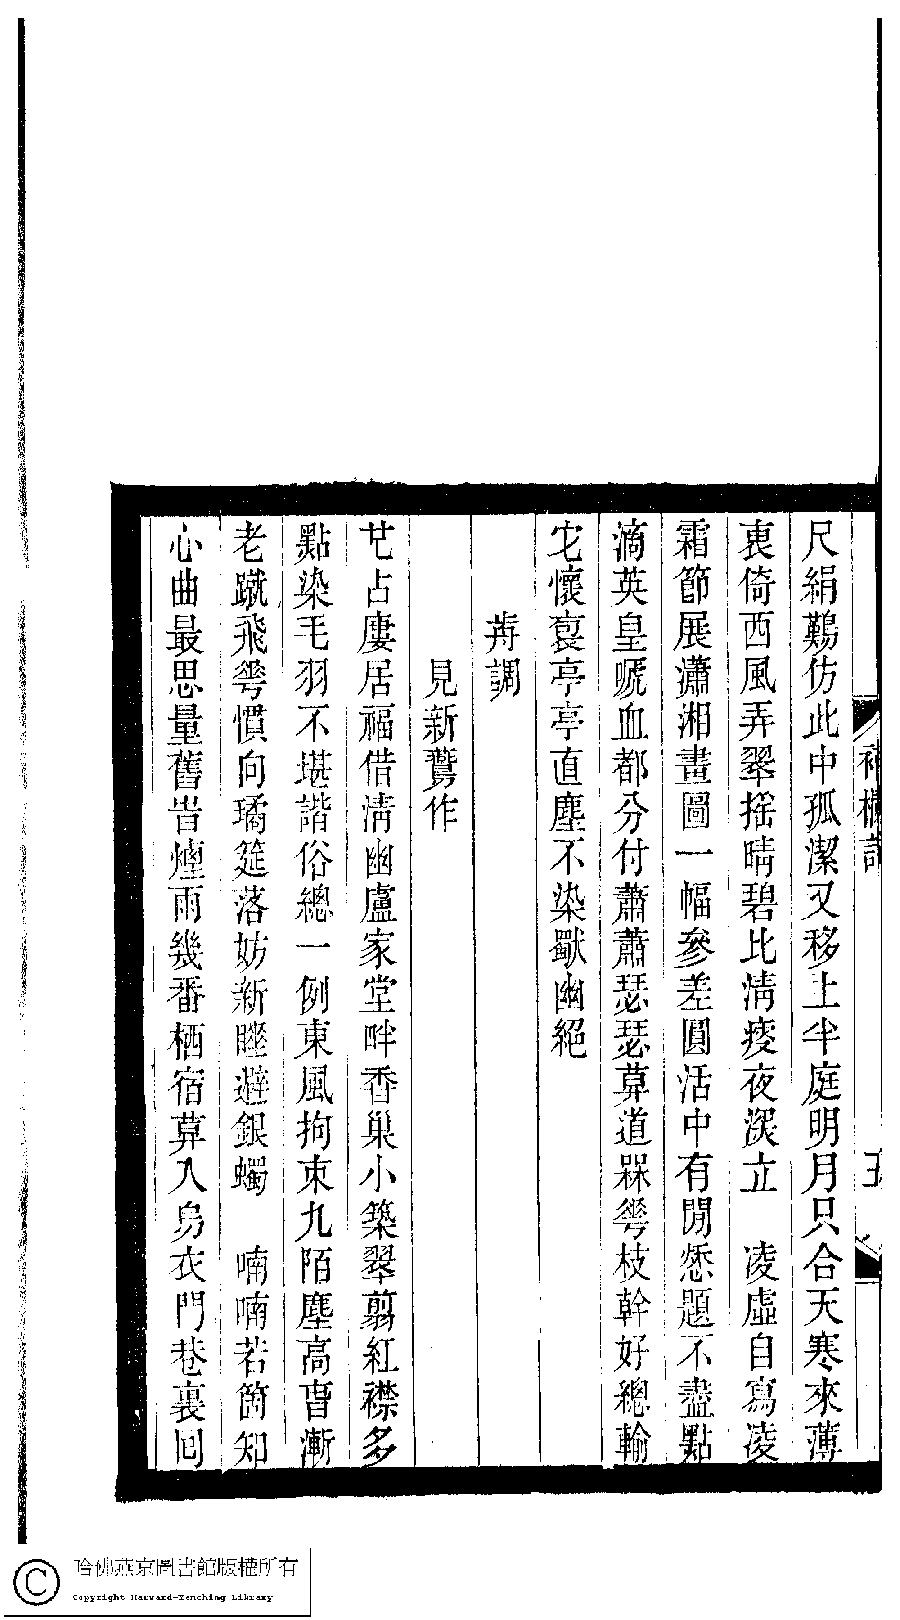 尺絹鷬仿此中孤潔又移上半庭明月只合天寒來薄
裏倚西風弄翠搖晴碧比淸痩夜深立　凌虛自寫凌
霜節展瀟湘畫圖一幅參差圓活中有閒愁題不盡點
滴英皇嗁血都分付蕭蕭瑟瑟算道槑蕚枝幹好總輸
它懷裒亭亭直塵不染獸幽絕
冓調
見新鷰作
芑占廔居福借淸幽盧家堂畔香巢小築翠翦紅襟多
點染毛羽不堪諧俗總一例東風拘束九陌塵高曺漸
老蹴飛蕚慣向璚筵落妨新睉避銀蠋　喃喃若箇知
心曲最思量舊昔煙雨幾番栖宿算入烏衣門巷裏囘
哈佛燕京圖書館版權所有
Copyright Harvard-Yenching Library